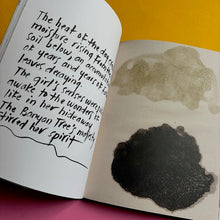 The heat of the day
moisture rising from the
soil below an accumulation
of years and years of
leaves decaying
The girl's senses were
awake to the wonders of
life in her hideaway
The Banyan Tree's
stirred her spirit